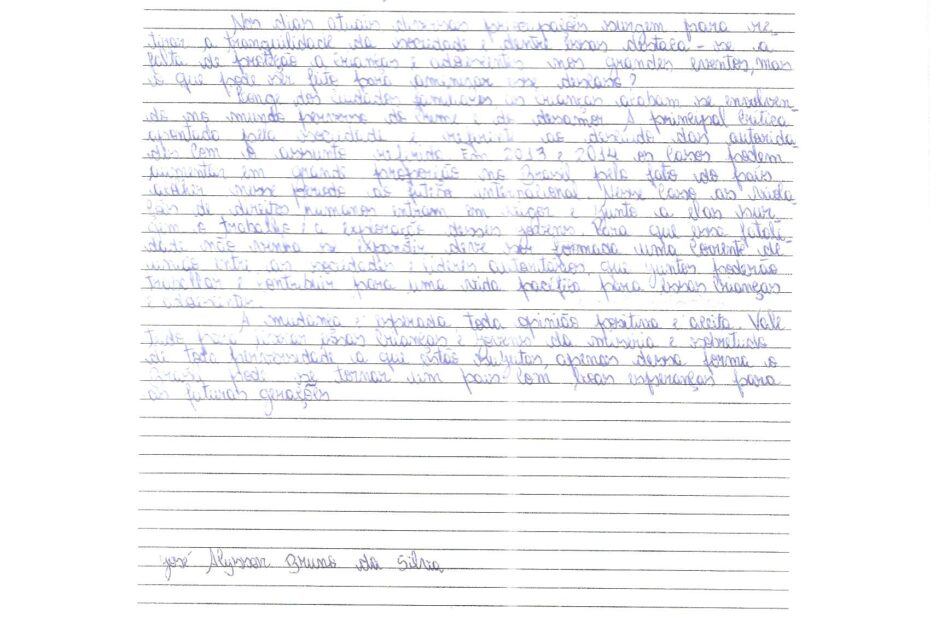 Nos dias atuais diversas preocupações surgem para re-
tirar a tranquilidade da sociedade e dentre essas destaca-se a
falta de proteção a crianças e adolescentes nos grandes eventos, mas
o que pode ser feito para amenizar esse descaso?
Longe dos cuidados familiares as crianças acabam se envolven-
do no mundo perverso do crime e do desamor. A principal crítica
apontada pela sociedade é referente ao descuido das autorida-
des com o assunto referido. Em 2013 e 2014 os casos podem
aumentar em grande proporção no Brasil, pelo fato do país
acolher nesse período ao futebol internacional. Nesse caso as viola
ções de direitos humanos entram em vigor e junto a elas sur
gem o trabalho e a exploração desses jovens. Para que essa fatali
dade não venha se expandir deve ser formada uma corrente de
união entre as sociedades e líderes autoritários, que juntos poderão
trabalhar e contribuir para uma vida pacífica para essas crianças
e adolescentes.
A mudança é esperada toda opinião positiva é aceita. Vale
tudo para livrar essas crianças e jovens da miséria e sobretudo
de toda perversidade a que estão sujeitos, apenas dessa forma o
Brasil pode se tornar um país com boas esperanças para
as futuras gerações
José Alysson Bruno da Silva